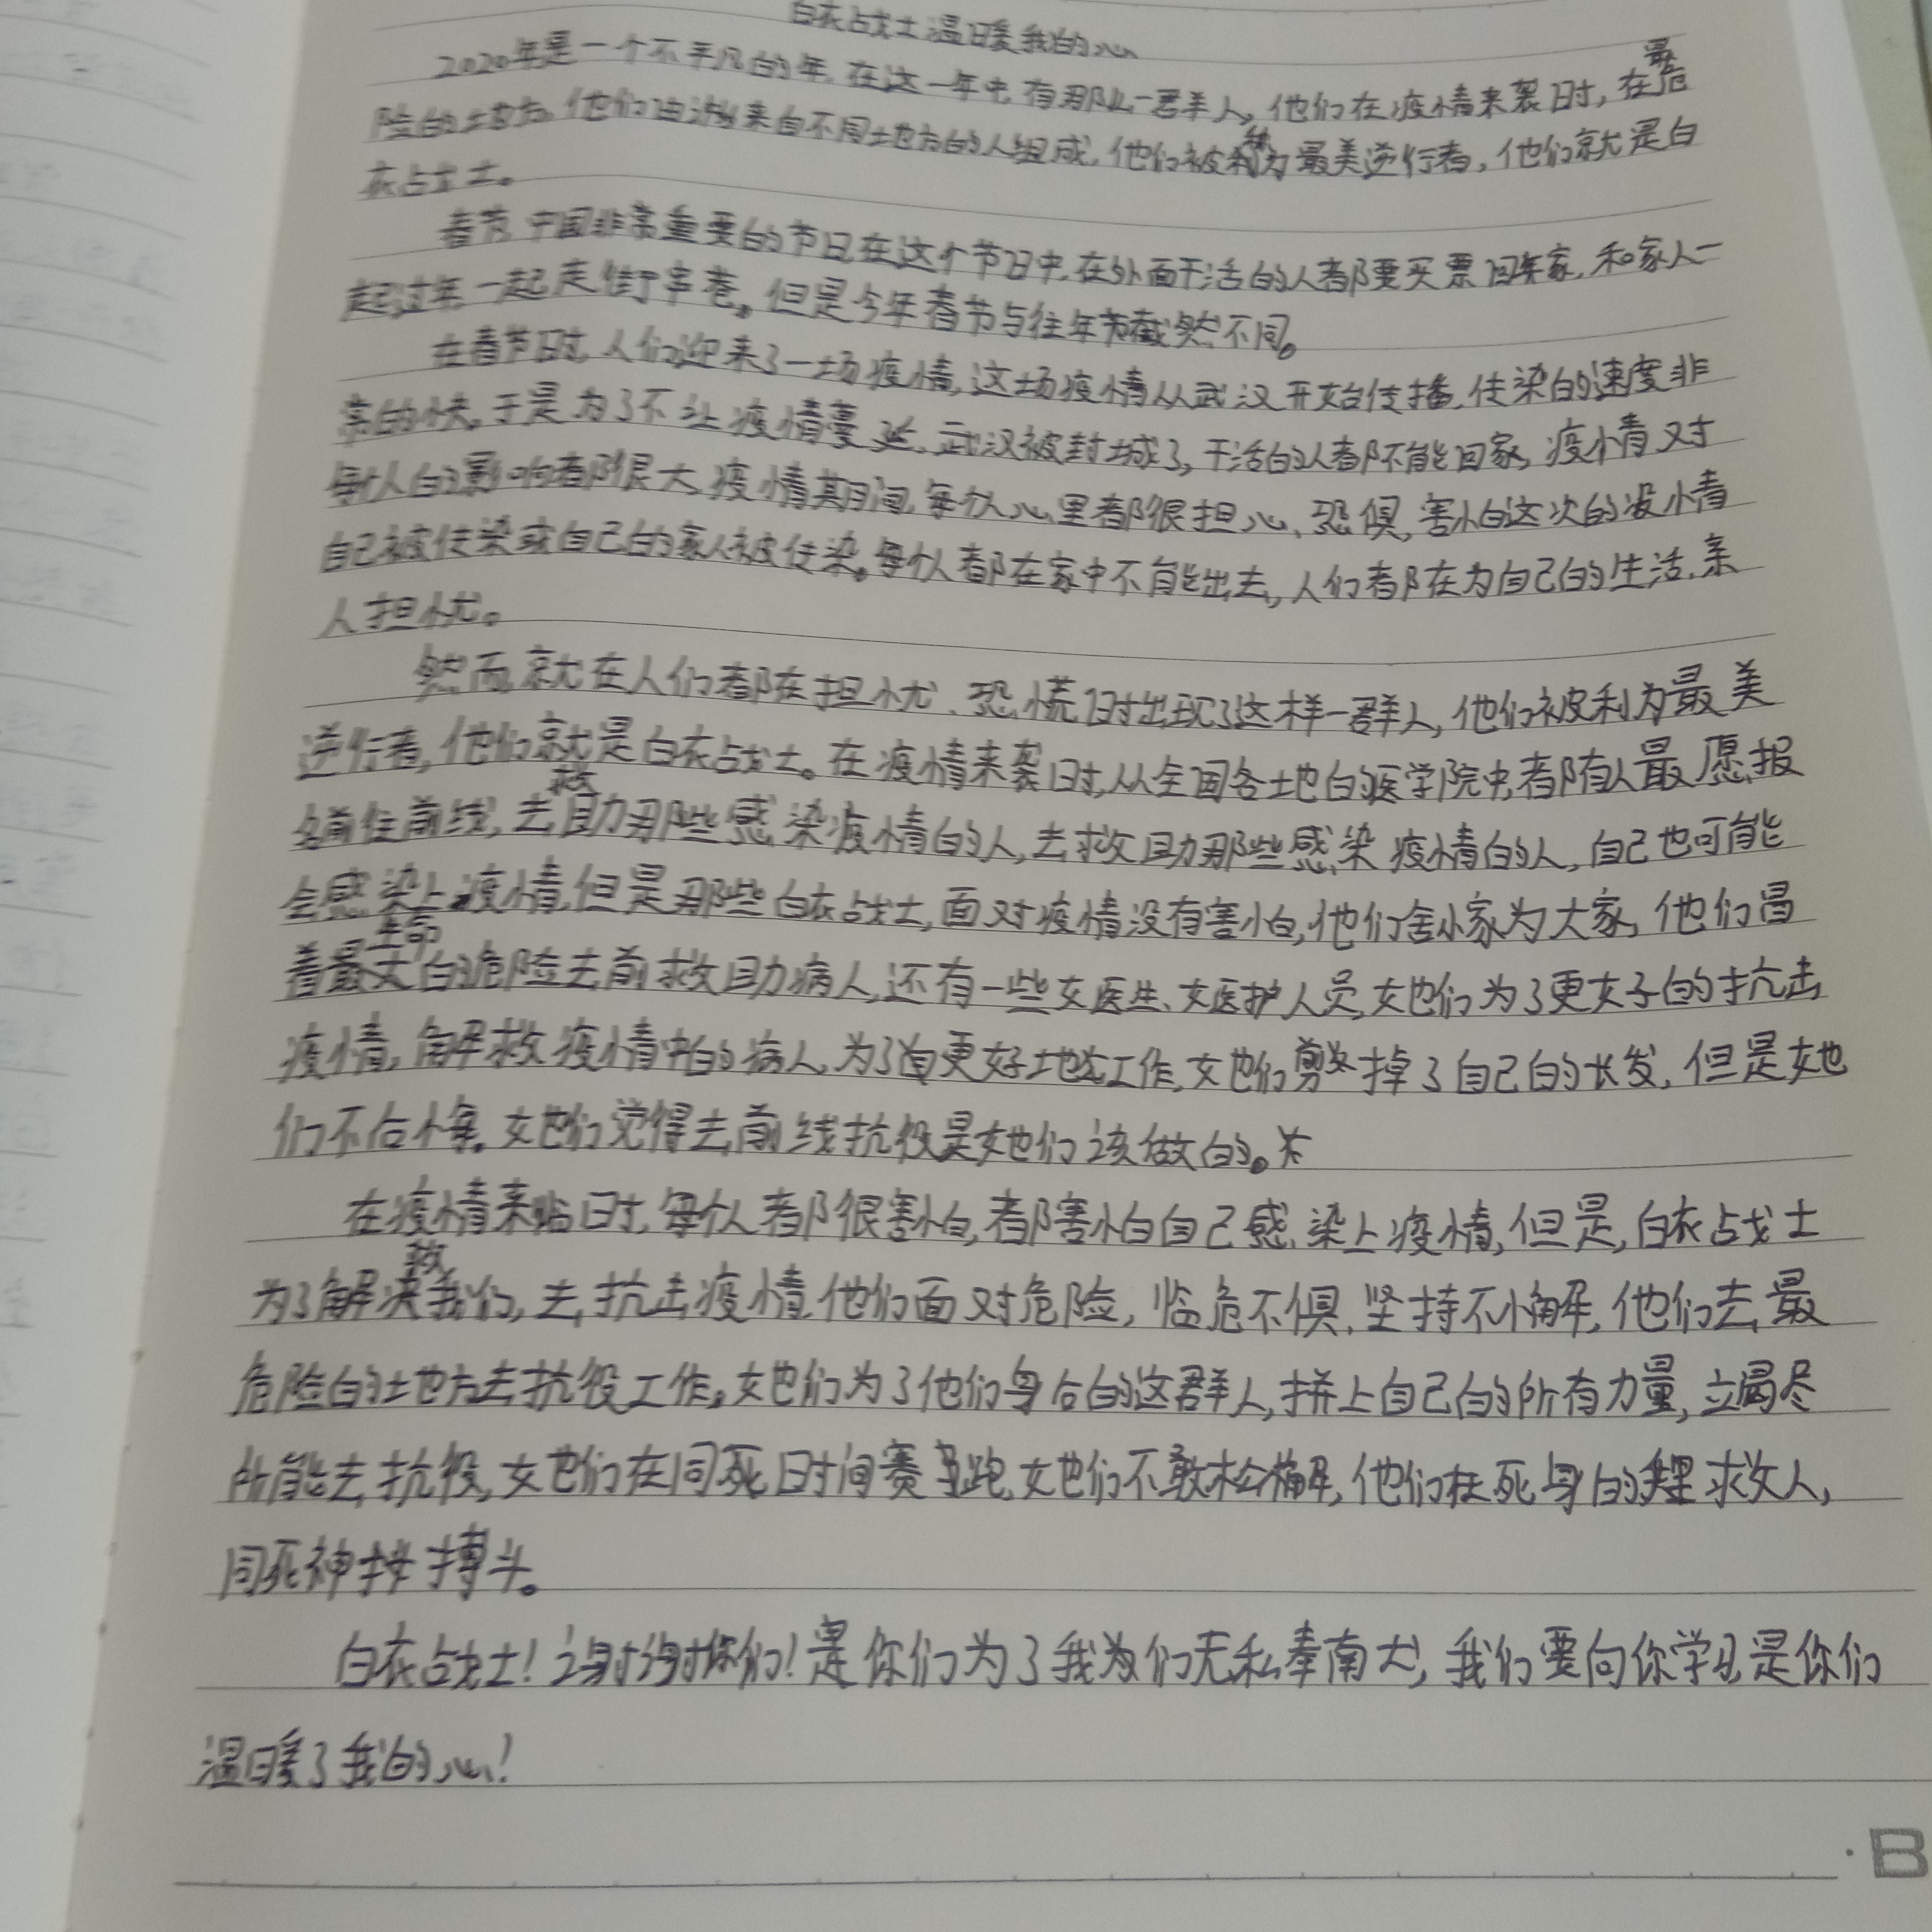 白衣战士温暖我的心
2020年是一个不平凡的年,在这一年中,有那么一群人,他们在疫情来袭时,在最危
险的地方,他们由来自不同地方的人组成,他们被称为最美逆行者,他们就是白
衣战士。
春节,中国非常重要的节日,在这个节日中,在外面干活的人都要买票回家,和家人一
起过年,一起走街串巷。但是今年春节与往年截然不同。
在春节时,人们迎来了一场疫情,这场疫情从武汉开始传播,传染的速度非
常的快,于是为了不让疫情蔓延,武汉被封城了,干活的人都不能回家,疫情对
每个人的影响都很大,疫情期间,每个人心里都很担心、恐惧,害怕这次的没情
自己被传染或自己的家人被传染。每个人都在家中不能出去,人们都在为自己的生活、亲
人担忧。
然而就在人们都在担忧、恐慌时出现了这样一群人,他们被利为最美
逆行者,他们就是白衣战士。在疫情来袭时,从全国各地的医学院中,都有人最愿报
名前往前线,去救助那些感染疫情的人,去救助那些感染疫情的人,自己也可能
会感染上疫情,但是那些白衣战士,面对疫情没有害怕,他们舍小家为大家,他们冒
着生命的危险去前救助病人,还有一些女医生、女医护人员,她们为了更好的抗击
疫情,解救疫情中的病人,为了更好地工作,她们剪掉了自己的长发,但是她
们不后悔,她们觉得去前线抗役是她们该做的。
在疫情来临时,每个人都很害怕,都害怕自己感染上疫情,但是,白衣战士
为了解救我们,去抗击疫情,他们面对危险,临危不惧,坚持不懈,他们去最
危险的地方去抗役工作。她们为了他们身后的这群人,拼上自己的所有力量,竭尽
所能去抗役,她们在同死时间赛跑,她们不敢松懈,他们在死身的手里救人,
同死神搏斗。
白衣战士!谢谢你们!是你们为了我们无私奉献,我们要向你学习是你们
温暖了我的心!
B